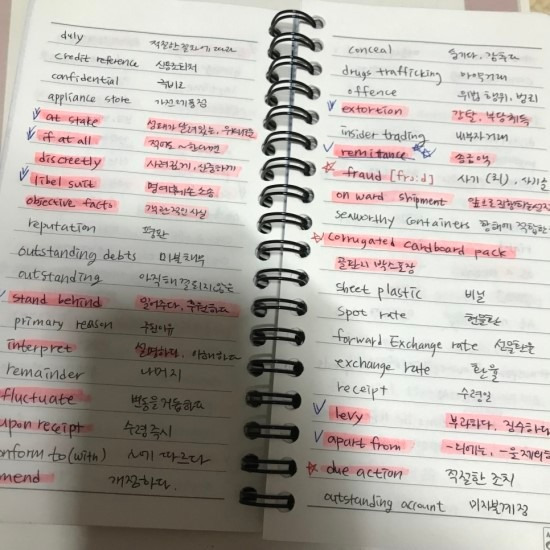 duly 적절한 절차에 따라
credit reference 신용조회처
confidential 극비의
appliance store 가전제품점
at stake 성패가 달려있는,
if at all 적어도 ~한다면
discreetly 사려깊게, 신중하게
libel suit 명예훼손 소송
objective facts 객관적인 사실
reputation 평판
outstanding debts 미불채무
outstanding 아직 해결되지 않은
stand behind 밀어주다, 후원하다
primary reason 주된이유
interpret 설명하다, 이해하다
remainder 나머지
fluctuate 변동을 거듭하다
upon receipt 수령 즉시
onform to (with) ~에 따르다
mend 개정하다.
conceal 숨기다, 감추다
drugs trafficking 마약거래
offence 위법 행위, 범죄
extortion 강탈, 부당취득
insider trading 내부자 거래
remittance 송금액
fraud [frɔ:d] 사기 (죄), 사기꾼
on ward shipment
seaworthy containers 항해에 적합한
corrugated cardboard pack
골판지 박스포장
sheet plastic 비닐
spot rate 현물환
forward Exchange rate 선물환율
exchange rate 환율
receipt 수령인
levy 부과하다, 징수하다
apart from
due action 적절한 조치
outstanding account 미지불계정